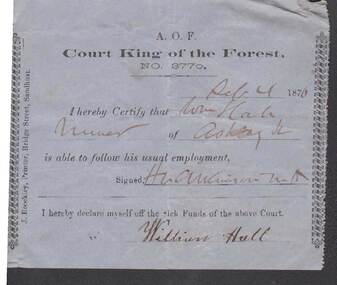 A. O. F.
Court King of the Forest,
NO. 3770.
187
I hereby Certify that Wm Hall
Miner of
is able to follow his usual employment,
Signed,
I hereby declare myself off the Sick Funds of the above Court.
William Hall
Printer, Bridge Street, Sandhurst.